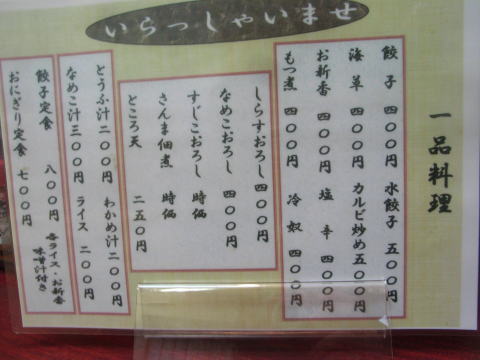 いらっしゃいませ
一品料理
餃子 四〇〇円 水餃子 五〇〇円
海草 四〇〇円 カルビ炒め 五〇〇円
お新香 四〇〇円 塩辛 四〇〇円
もつ煮 四〇〇円 冷奴 四〇〇円
しらすおろし 四〇〇円
なめこおろし 四〇〇円
すじこおろし 時価
さんま佃煮 時価
ところ天 二五〇円
とうふ汁 二〇〇円 わかめ汁 二〇〇円
なめこ汁 三〇〇円 ライス 二〇〇円
餃子定食 八〇〇円
おにぎり定食 七〇〇円
各ライス・お新香
味噌汁付き